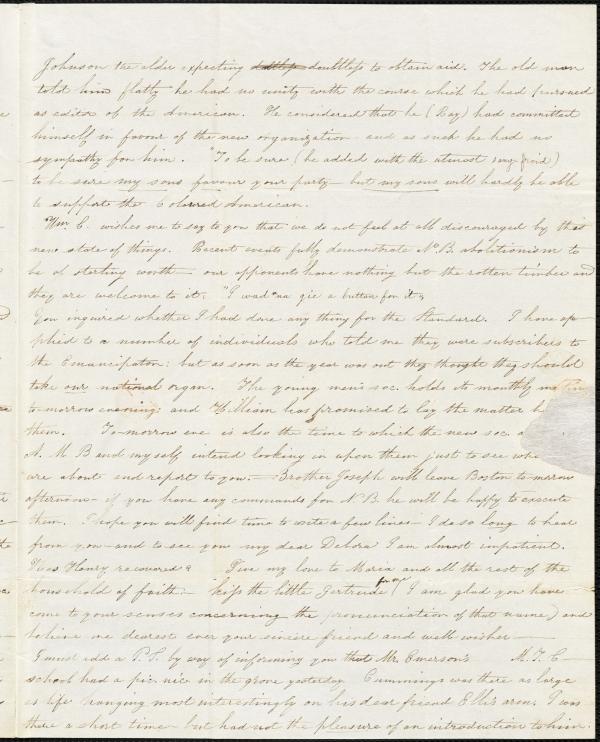 Johnson the elder expecting doubtless to obtain aid. The old man
told him flatly he had no unity with the course which he had pursued
as editor of the American. He considered that he (Ray) had committed
himself in favour of the new organization and as such he had no
sympathy for him. "To be sure (he added with the utmost
to be sure my sons favour your party – but my sons will hardly be able
to support the Colored American.
Wm C. wishes me to say to you that we do not feel at all discouraged by this
new state of things. Recent events fully demonstrate N.B. abolitionism to
be of sterling worth – our opponents have nothing but the rotten timber and
they are welcome to it. "I wad na gie a button for it."
You inquired whether I had done any thing for the Standard. I have ap-
plied to a number of individuals who told me they were subscribers to
the Emancipator: but as soon as the year was out they thought they should
take our national organ. The young men's soc. holds its monthly
to-morrow evening: and William has promised to lay the matter
them. To-morrow eve is also the time to which the new soc.
A. M B and myself intend looking in upon them just to see
are about and report to you. – Brother Joseph will leave Boston to-morrow
afternoon – if you have any commands for N B. he will be happy to execute
them. I hope you will find time to write a few lines – I do so long to hear
from you – and to see you my dear Debora I am almost impatient.
Has Henry recovered? Give my love to Maria and all the rest of the
household of faith – kiss the little Gertrude for me (I am glad you have
come to your senses concerning the pronunciation of that name) and
believe me dearest ever your sincere friend and well wisher –
I must add a P.S. by way of informing you that Mr. Emerson's M. J. C –
school had a pic nic in the grove yesterday. Cummings was there as large
as life ranging most interestingly on his dear friend Ellis arm. I was
there a short time – but had not the pleasure of an introduction to him.